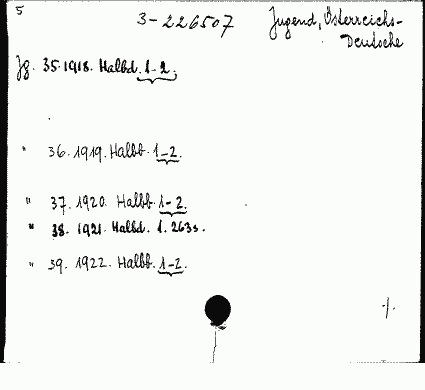 5
3-226507
Jugend, Österreichs-
Deutsche
Jg. 35.1918. Halbd. 1-2.
" 36.1919. Halbb. 1-2.
" 37.1920. Halbb. 1-2.
" 38. 1921. Halbd. 1. 263s.
" 39. 1922. Halbb. 1-2.